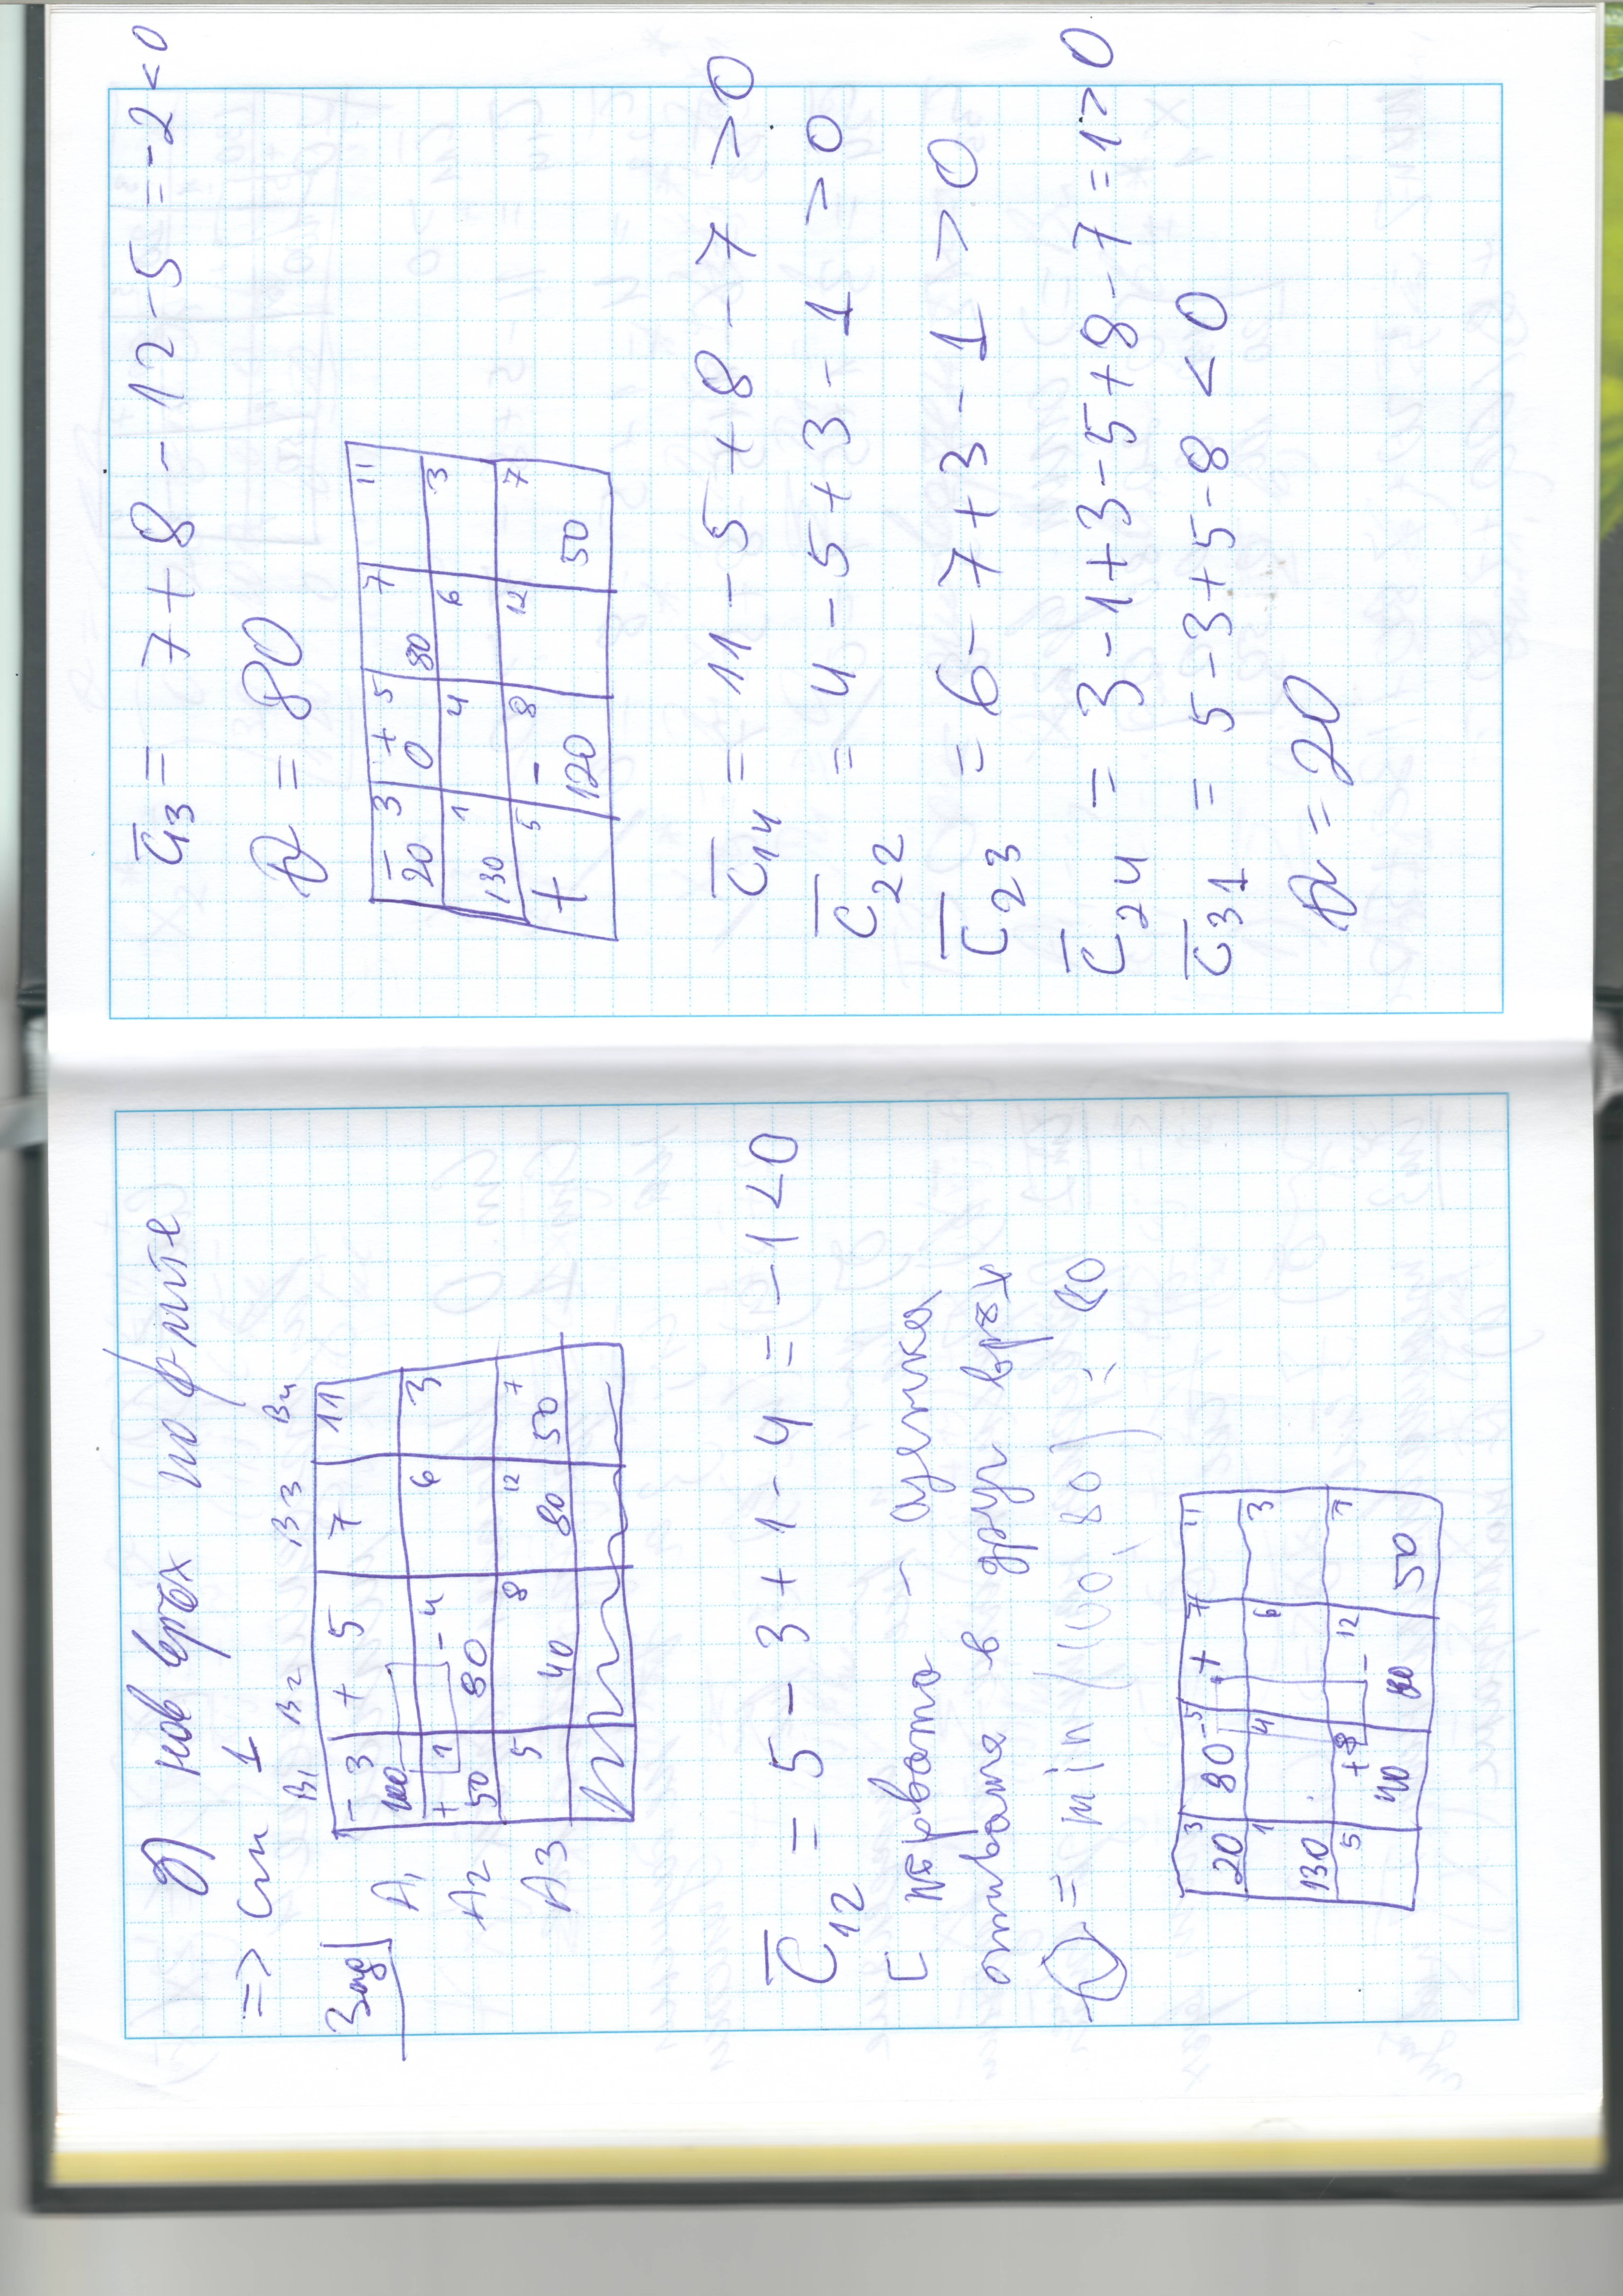 δ) нов връх по р-мите
=> сm 1
Зад
B1 B2 B3 B4
A1 - 3 100 + 5 7 11
A2 + 1 50 - 4 80 6 3
A3 5 8 40 12 80 7 50
C̄12 = 5 - 3 + 1 - 4 = -1 < 0
[ първата - оценка
отиваме в друг връх
= min (100, 80) = 80
3 20 -5 80 + 7 11
1 130 4 6 3
5 +8 40 - 12 80 7 50
C̄13 = 7 + 8 - 12 - 5 = -2 < 0
= 80
- 3 20 + 5 0 7 80 11
1 130 4 6 3
+ 5 - 8 120 12 7 50
C̄14 = 11 - 5 + 8 - 7 > 0
C̄22 = 4 - 5 + 3 - 1 > 0
C̄23 = 6 - 7 + 3 - 1 > 0
C̄24 = 3 - 1 + 3 - 5 + 8 - 7 = 1 > 0
C̄31 = 5 - 3 + 5 - 8 < 0
= 20